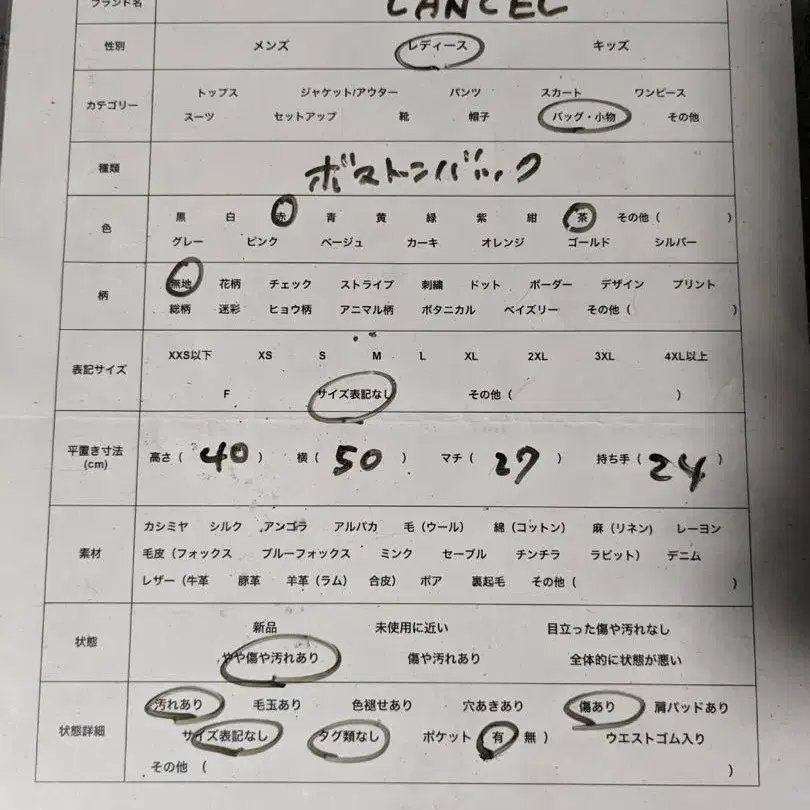 ブランド名 LANCEL
性別 メンズ レディース キッズ
カテゴリー
トップス ジャケット/アウター パンツ スカート ワンピース
スーツ セットアップ 靴 帽子 バッグ・小物 その他
種類 ボストンバック
色
黒 白 赤 青 黄 緑 紫 紺 茶 その他 ( )
グレー ピンク ベージュ カーキ オレンジ ゴールド シルバー
柄
無地 花柄 チェック ストライプ 刺繍 ドット ボーダー デザイン プリント
総柄 迷彩 ヒョウ柄 アニマル柄 ボタニカル ペイズリー その他 ( )
表記サイズ
XXS以下 XS S M L XL 2XL 3XL 4XL以上
F サイズ表記なし その他 ( )
平置き寸法
(cm)
高さ ( 40 ) 横 ( 50 ) マチ ( 27 ) 持ち手 ( 24 )
素材
カシミヤ シルク アンゴラ アルパカ 毛 (ウール) 綿 (コットン) 麻 (リネン) レーヨン
毛皮 (フォックス ブルーフォックス ミンク セーブル チンチラ ラビット) デニム
レザー (牛革 豚革 羊革 (ラム) 合皮) ボア 裏起毛 その他 ( )
状態
新品 未使用に近い 目立った傷や汚れなし
やや傷や汚れあり 傷や汚れあり 全体的に状態が悪い
状態詳細
汚れあり 毛玉あり 色褪せあり 穴あきあり 傷あり 肩パッドあり
サイズ表記なし タグ類なし ポケット 有 無 ) ウエストゴム入り
その他 ( )